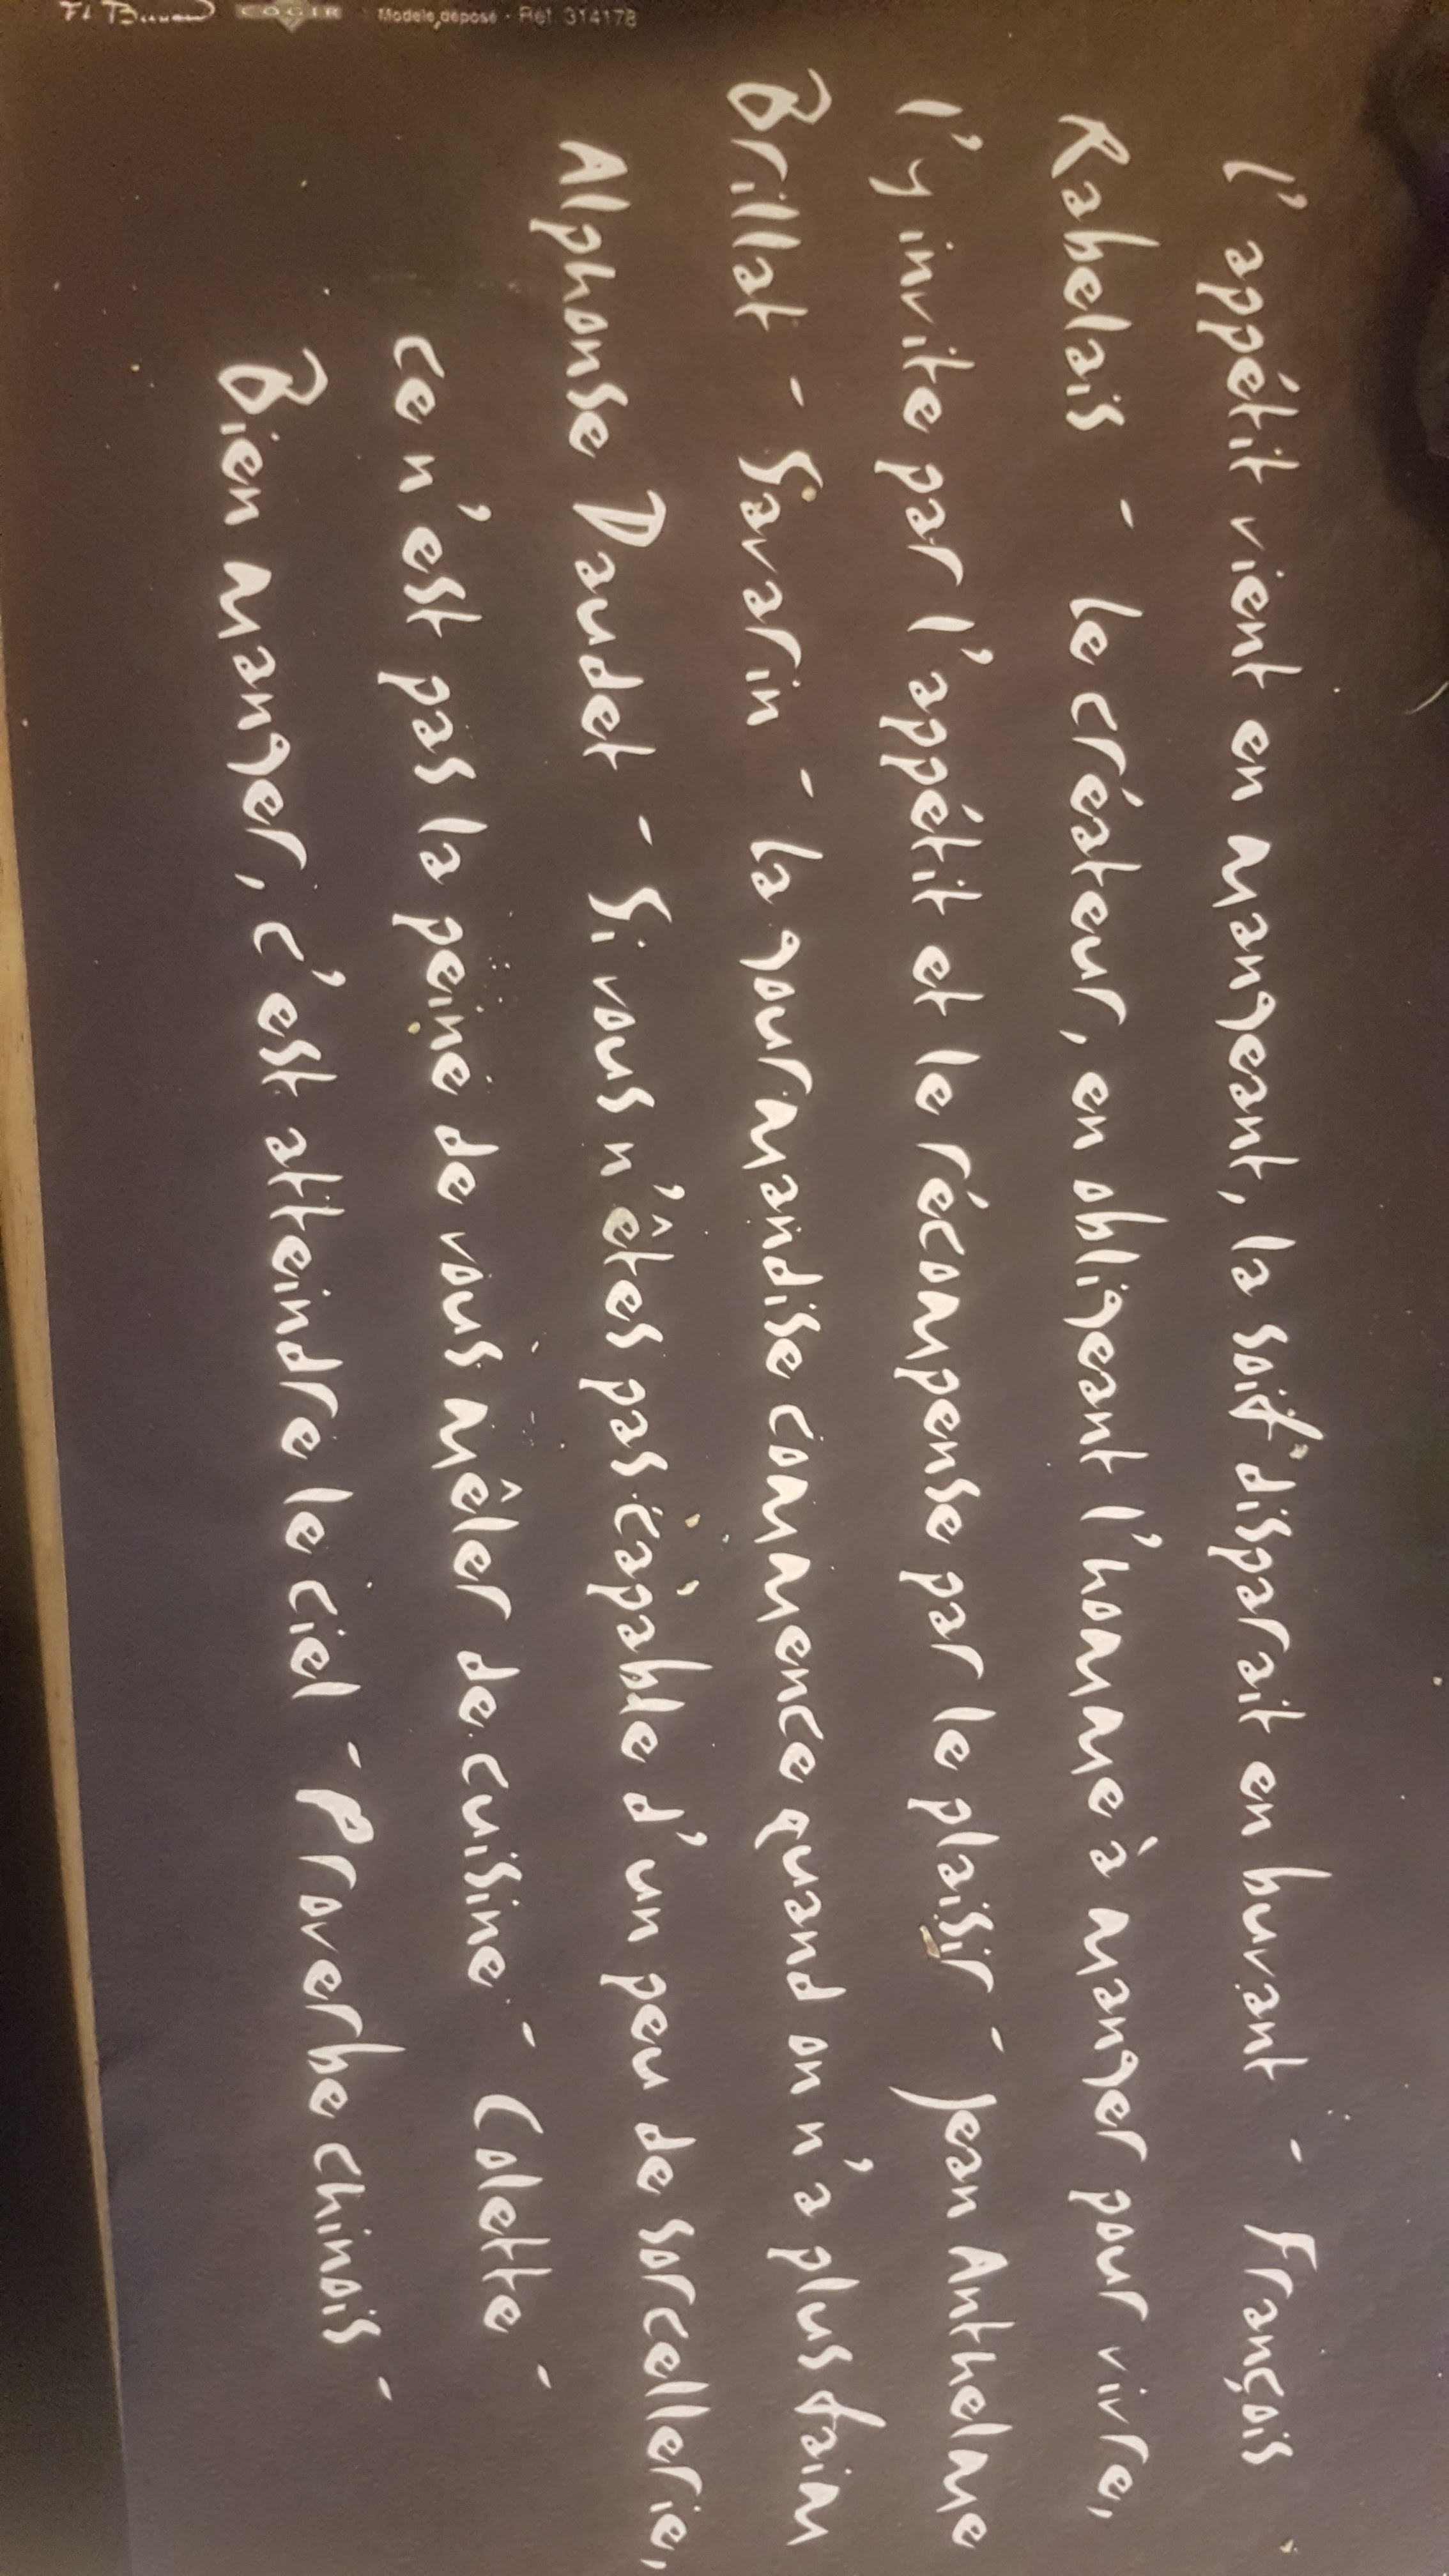 l'appétit vient en mangeant, la soif disparait en buvant - François
Rabelais - le créateur, en obligeant l'homme à manger pour vivre,
l'y invite par l'appétit et le récompense par le plaisir - Jean Anthelme
Brillat - Savarin - la gourmandise commence quand on n'a plus faim
Alphonse Daudet - Si vous n'êtes pas capable d'un peu de sorcellerie,
ce n'est pas la peine de vous mêler de cuisine - Colette -
Bien manger, c'est atteindre le ciel - Proverbe chinois -
COGIR Modèle déposé - Réf. 314178